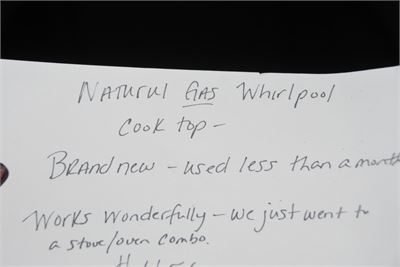 Natural Gas Whirlpool
Cook top -
Brand new - used less than a month
Works Wonderfully - we just went to
a stove/oven combo.